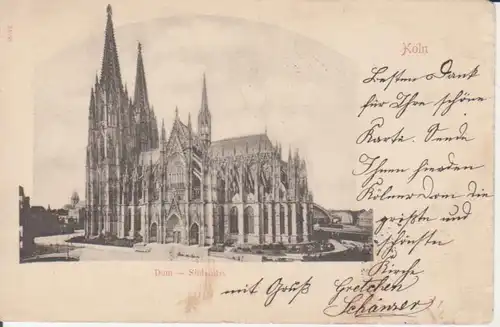 Köln
Besten Dank
für Ihre schöne
Karte. Sende
Ihnen hierden
Kölner Dom die
größte und
schönste
Kirche
Dom – Südseite.
mit Gruß Gretchen
Schänzer